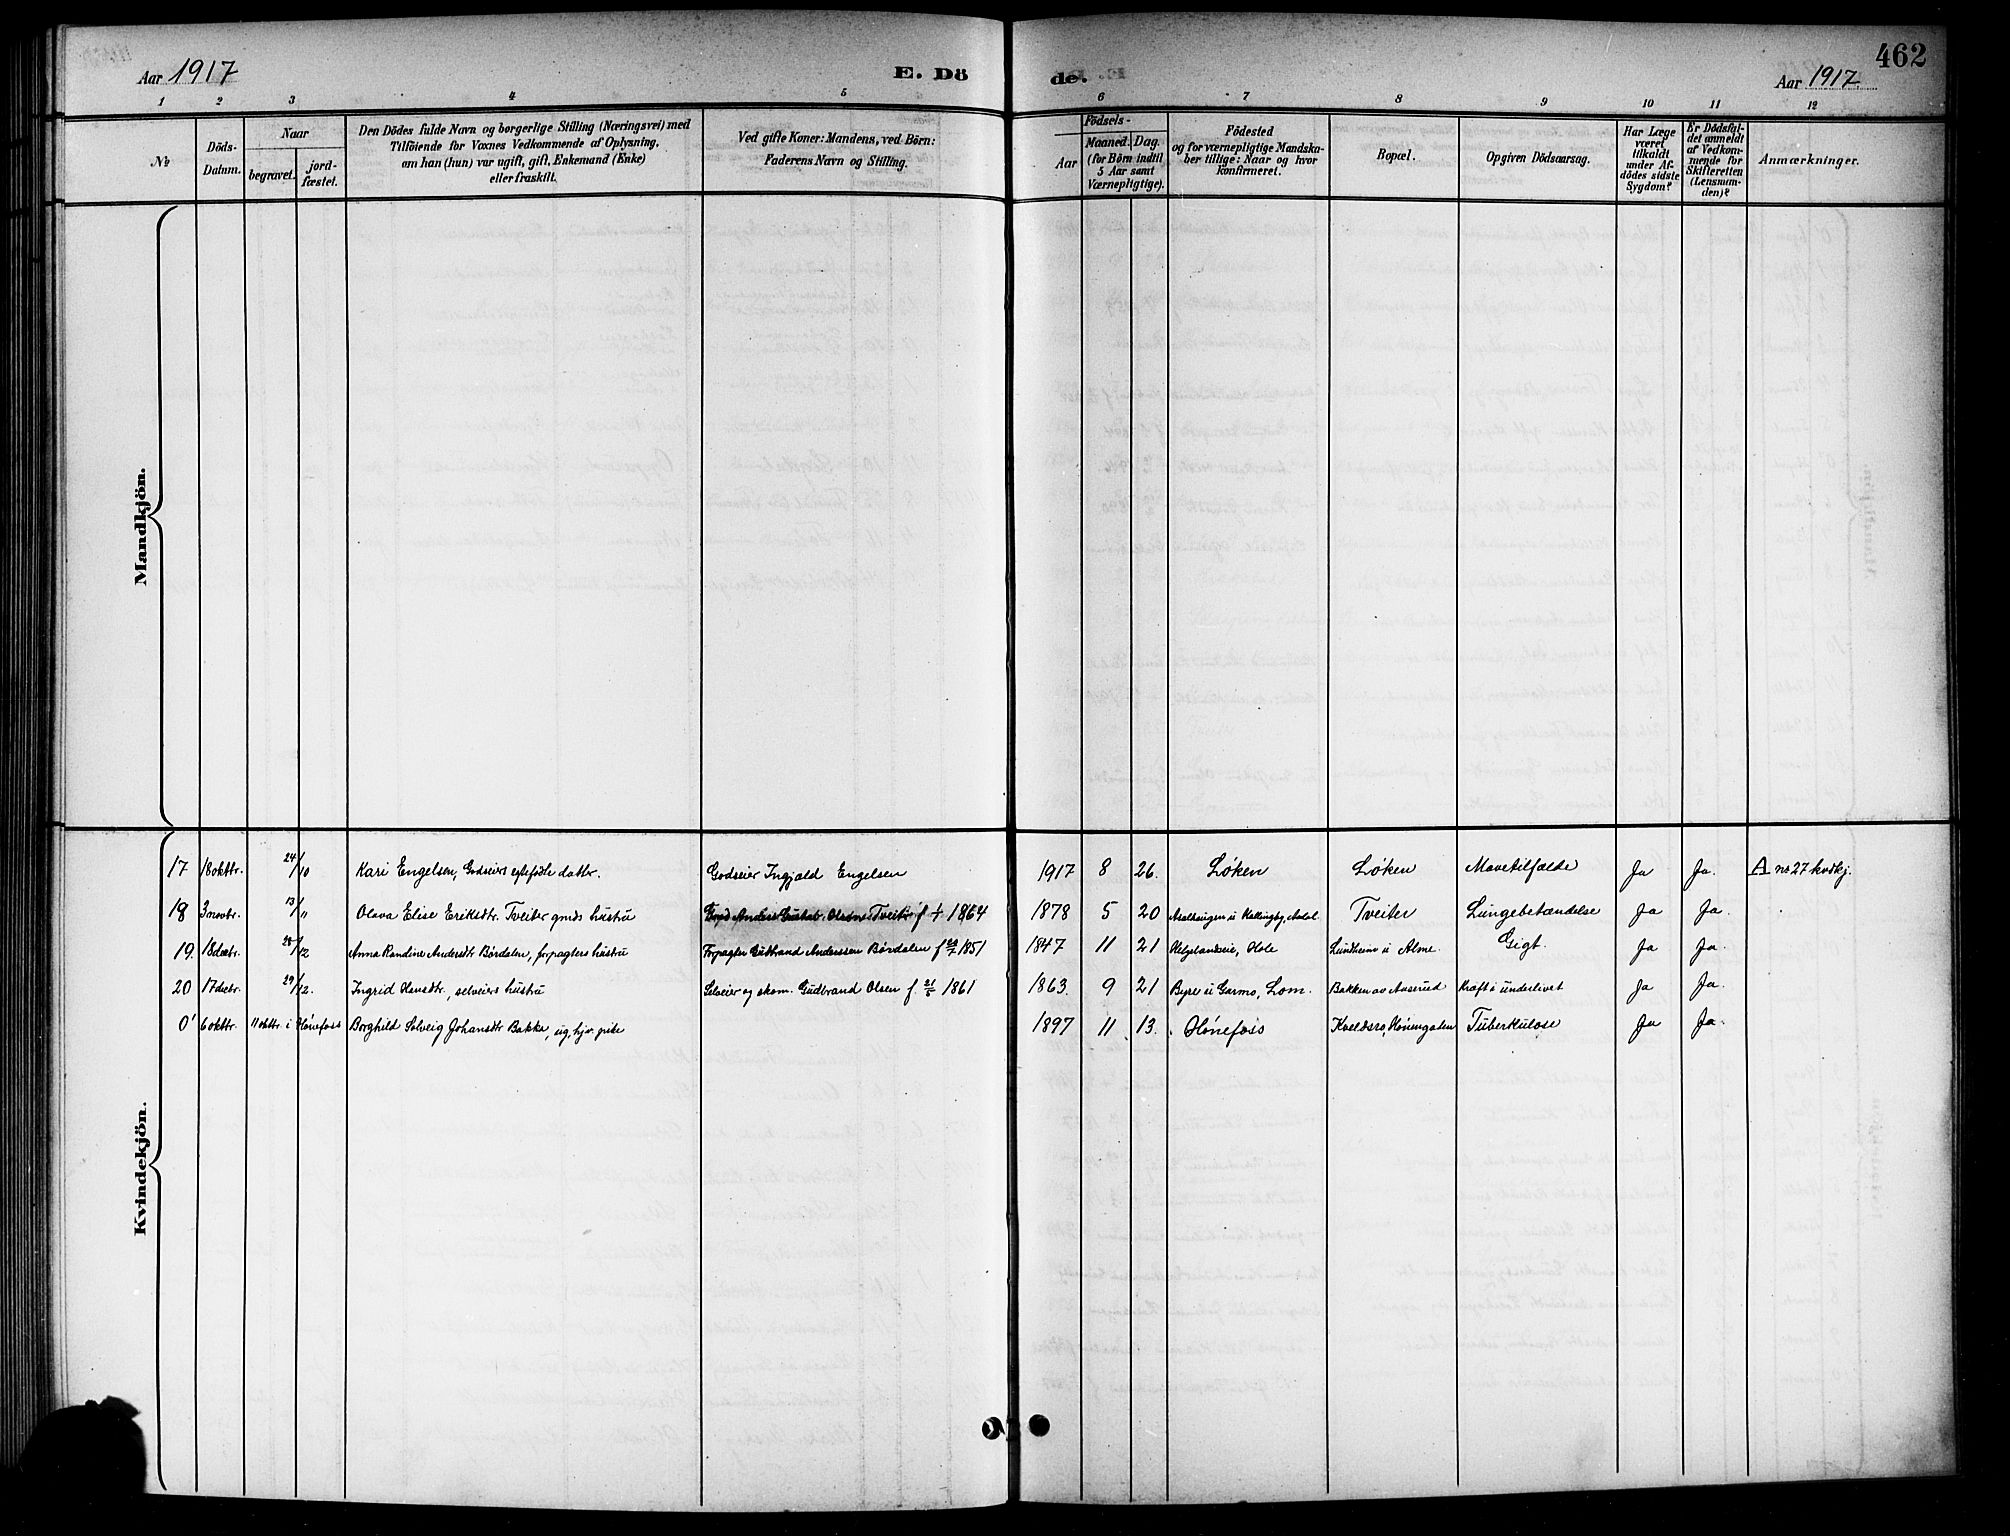 Aar 1917
E. Dö
de.
Aar 1917.
462
1 2 3 4 5 6 7 8 9 10 11 12
№
Döds-Datum.
Naar
begravet.
jord-fæstet.
Den Dödes fulde Navn og borgerlige Stilling (Næringsvei) med
Tilföiende for Voxnes Vedkommende af Oplysning,
om han (hun) var ugift, gift, Enkemand (Enke)
eller fraskilt.
Ved gifte Koner: Mandens, ved Börn:
Faderens Navn og Stilling.
Födsels-
Aar
Maaned.
Dag.
(for Börn indtil
5 Aar samt
Værnepligtige).
Födested
og for værnepligtige Mandska-
ber tillige: Naar og hvor
konfirmeret.
Bopæl.
Opgiven Dödsaarsag.
Har Læge
været
tilkaldt
under Af-
dödes sidste
Sygdom?
Er Dödsfal-
det anmeldt
af Vedkom-
mende for
Skifteretten
(Lensman-
den)?
Anmærkninger.
Mandkjön.
Kvindekjön.
17 18 oktbr. 24/10 Kari Engelsen, Godseiers egtefødte datter. Godseier Ingjald Engelsen 1917 8 26. Løken Løken Mavetilfælde Ja Ja. A nr 27 kvdkj.
18 3 novbr. 13/11 Olava Elise Eriksdtr. Tveiter gmds hustru Anders Gustav Olsen Tveiter f 1864 1878 5 20 Tveiter Lungebetændelse Ja Ja.
19. 18 decbr. 28/12 Anna Randine Andersdtr Børdalen, forpagters hustru Forpagter Gulbrand Anderssen Børdalen f 1851 1847 11 21 Helgelandseie, Hole Lundheim u Alme. Gigt. Ja Ja.
20 17 decbr. 29/12. Ingrid Hansdtr., selveiers hustru Selveier og skom. Gudbrand Olsen f. 21/5 1861 1863. 9 21 Byre u Garmo, Lom. Bakken av Aaserud Kræft i underlivet Ja Ja.
0' 6 oktbr. 11 oktbr. i Hönefoss Borghild Solveig Johansdtr Bakke, ug, hjv. pike 1897 11 13. Hönefoss Kveldsro, Höniengaten Tuberkulose Ja Ja.